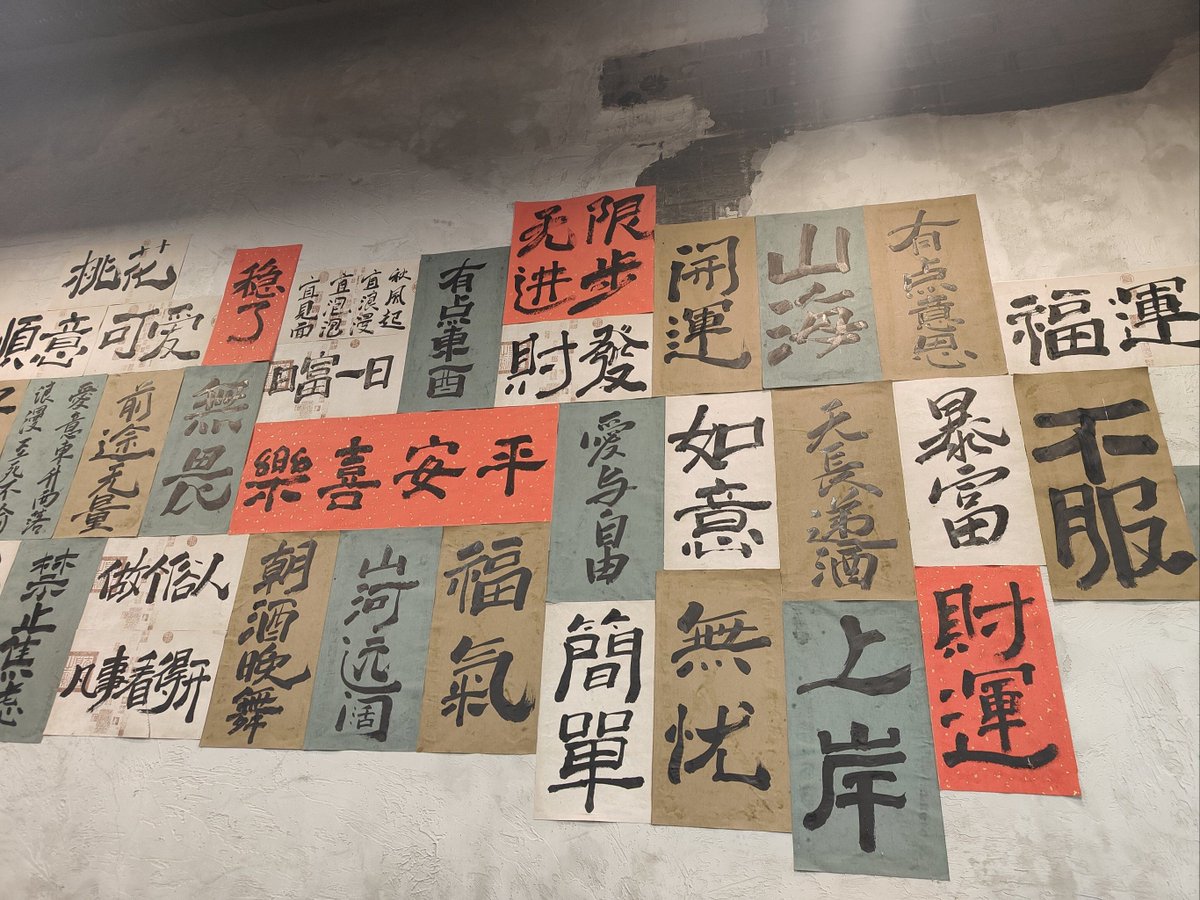 桃花
順意
可爱
稳了
秋風起
宜浪漫
宜泡泡
宜見面
日富一日
有点東西
无限
进步
發財
開運
山海
有点意思
福運
愛意東升西落
浪漫至死不渝
前途无量
無畏
平安喜樂
愛与自由
如意
天長递酒
暴富
不服
禁止焦慮
做个俗人
凡事看得開
朝酒晚舞
山河远阔
福氣
簡單
無忧
上岸
財運